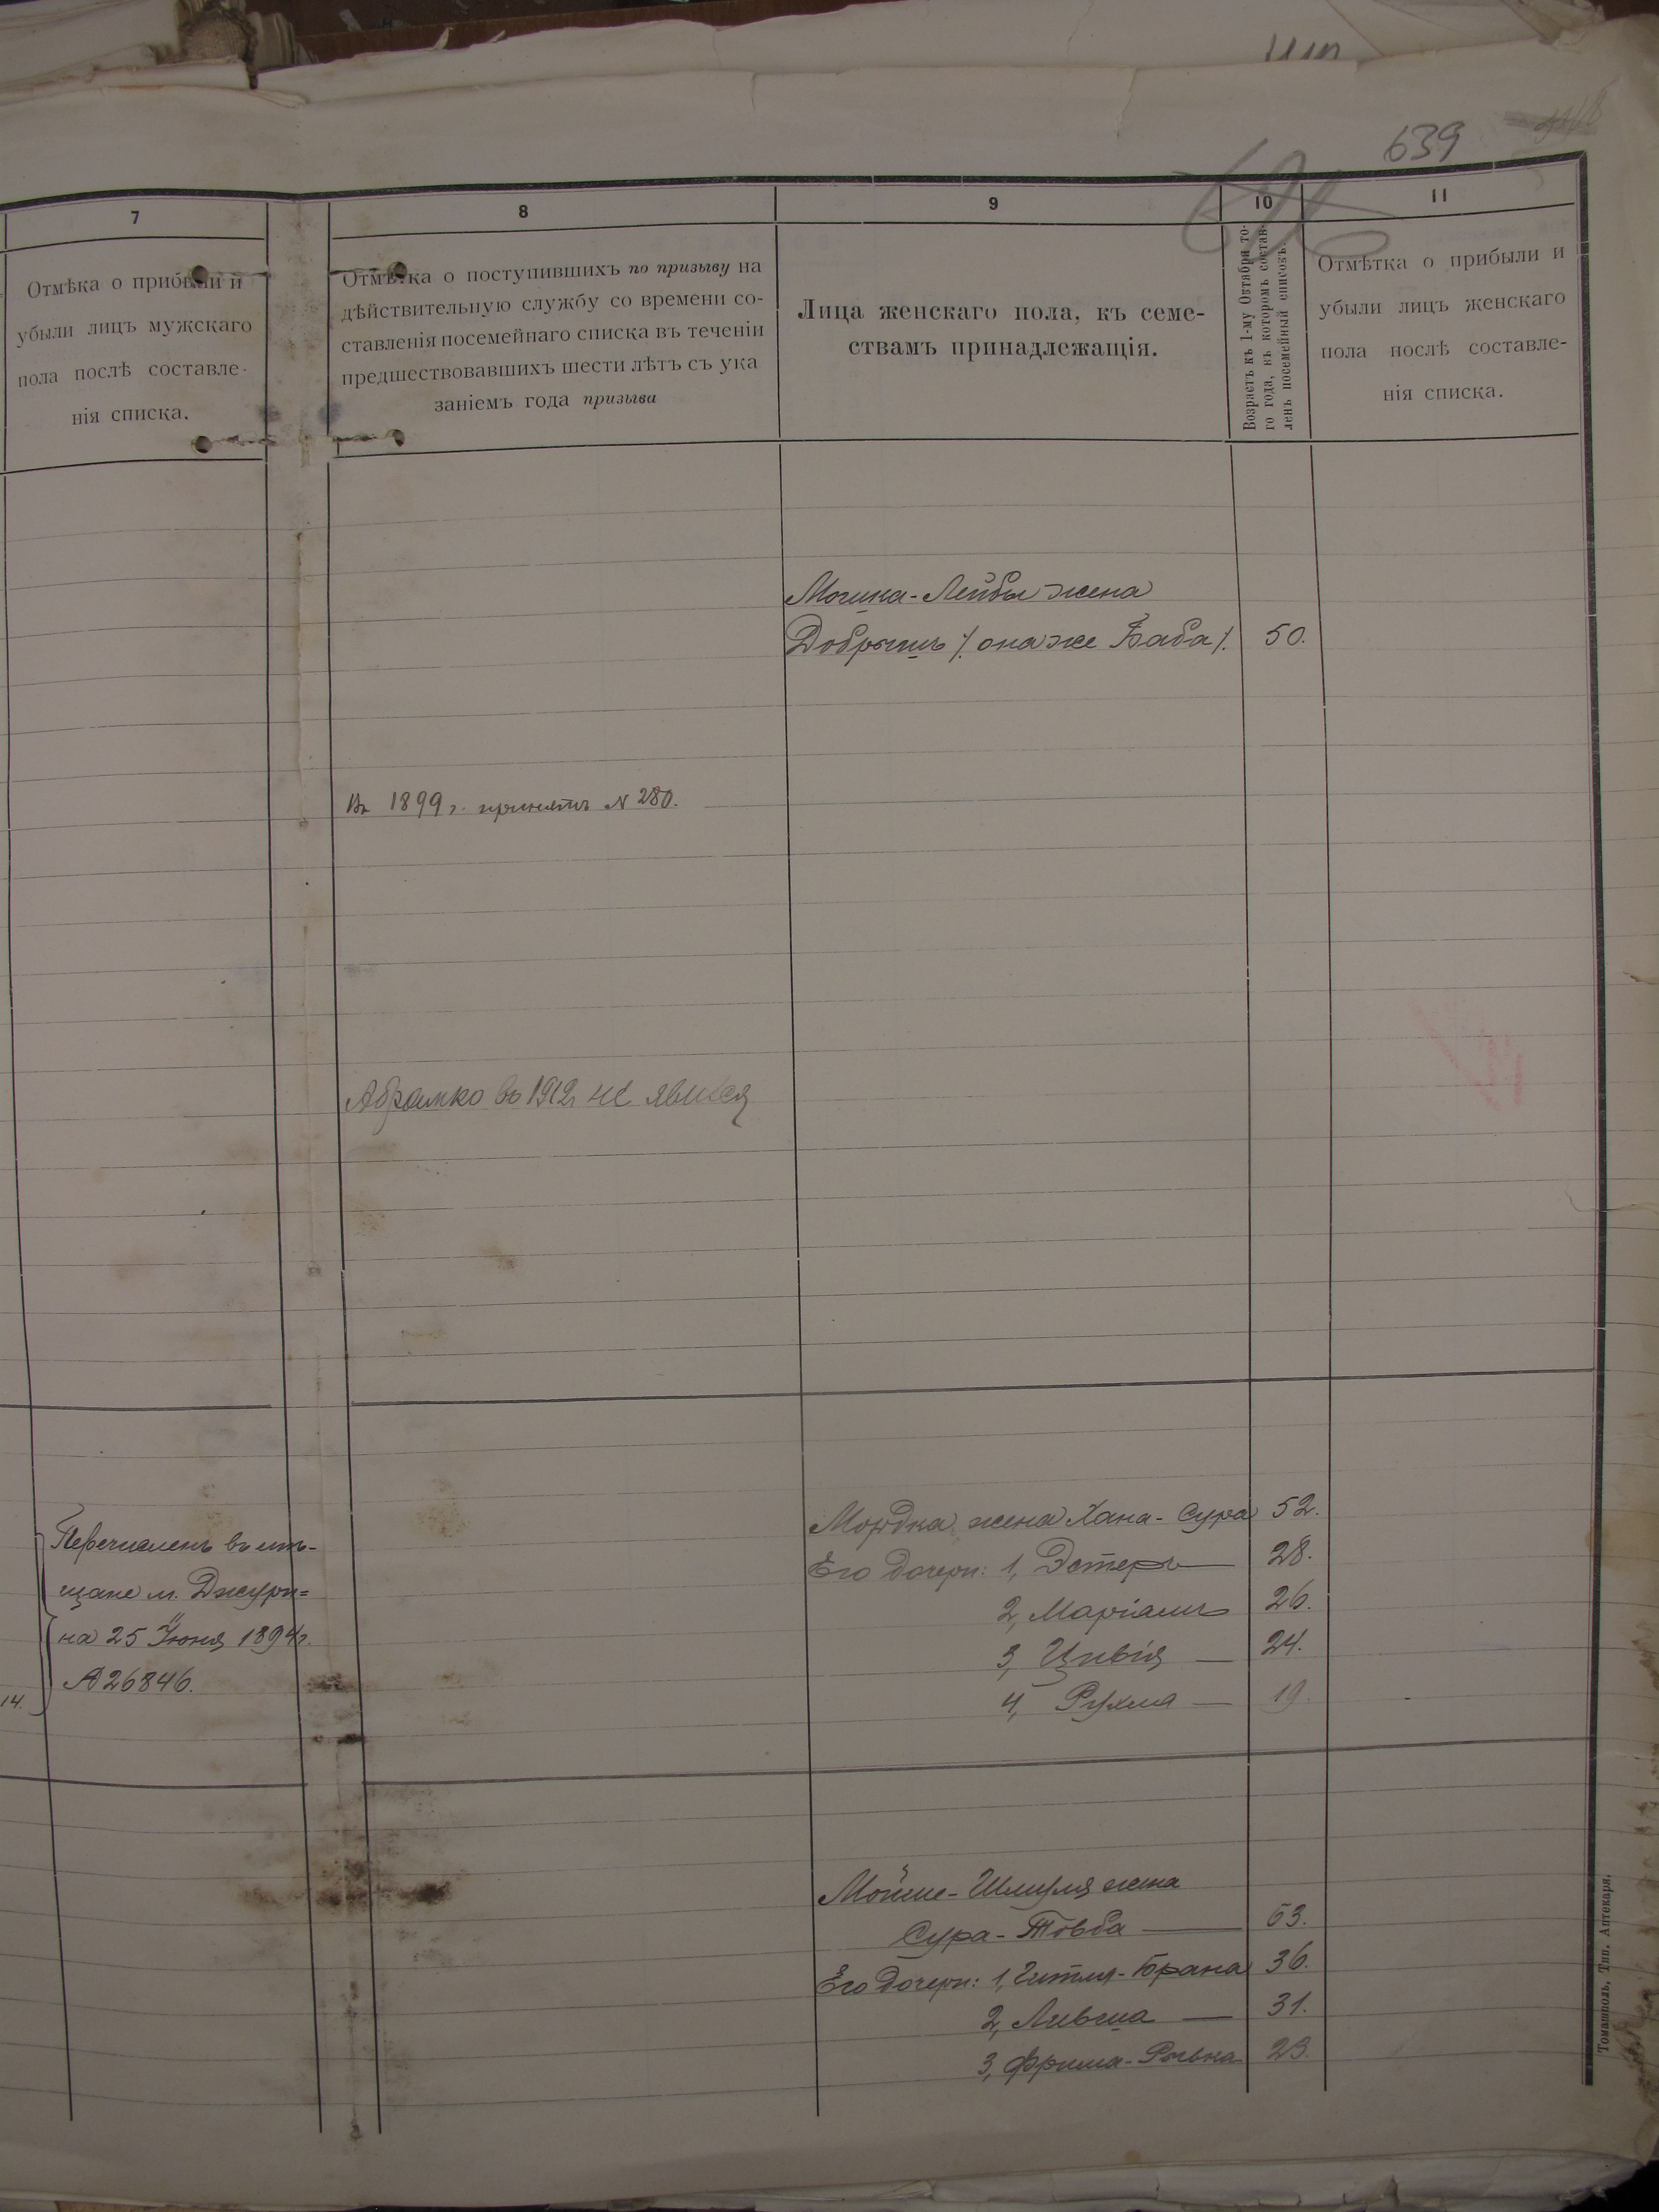 639
7
8
9
10
11
Отмѣка о прибыли и
убыли лицъ мужскаго
пола послѣ составле-
нія списка.
Отмѣтка о поступившихъ по призыву на
дѣйствительную службу со времени со-
ставленія посемейнаго списка въ теченіи
предшествовавшихъ шести лѣтъ съ ука
заніемъ года призыва
Лица женскаго пола, къ семе-
ствамъ принадлежащія.
Возрастъ къ 1-му Октября то-
го года, въ которомъ состав-
ленъ посемейный списокъ.
Отмѣтка о прибыли и
убыли лицъ женскаго
пола послѣ составле-
нія списка.
Мошка-Лейбы жена
Добрышъ /. она же Баба /. 50.
Въ 1899 г. принятъ N 280.
Абрамко въ 1912 не явился
Перечисленъ въ мѣ-
щане м. Джури=
на 25 Іюня 1894 г.
№ 26846.
14.
Мордка жена Хана-Сура 52.
Его дочери: 1, Эстеръ — 28.
2, Маріамъ 26.
3, Цивія — 24.
4, Рухма — 19.
Мойше-Шмуля жена
Сура-Товба — 63.
Его дочери: 1, Гитля-Брана 36.
2, Ливша — 31.
3, Фрима-Рывка 23.
Томашполь, Тип. Аптекаря.